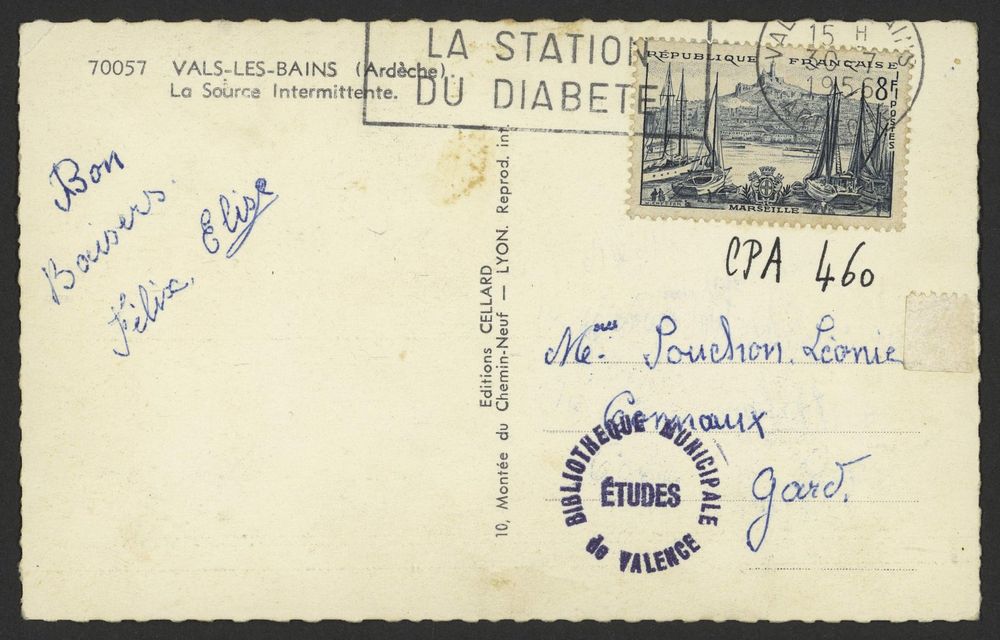 70057 VALS-LES-BAINS (Ardèche).
La Source Intermittente.
LA STATION
DU DIABETE
15 H
30-7
1956
RÉPUBLIQUE FRANÇAISE
8F
POSTES
MARSEILLE
CPA 460
Bon
Baisers.
Félix, Elise
Editions CELLARD
10, Montée du Chemin-Neuf — LYON. Reprod. int.
Souchon. Léonie
Gard.
BIBLIOTHEQUE MUNICIPALE
ÉTUDES
de VALENCE